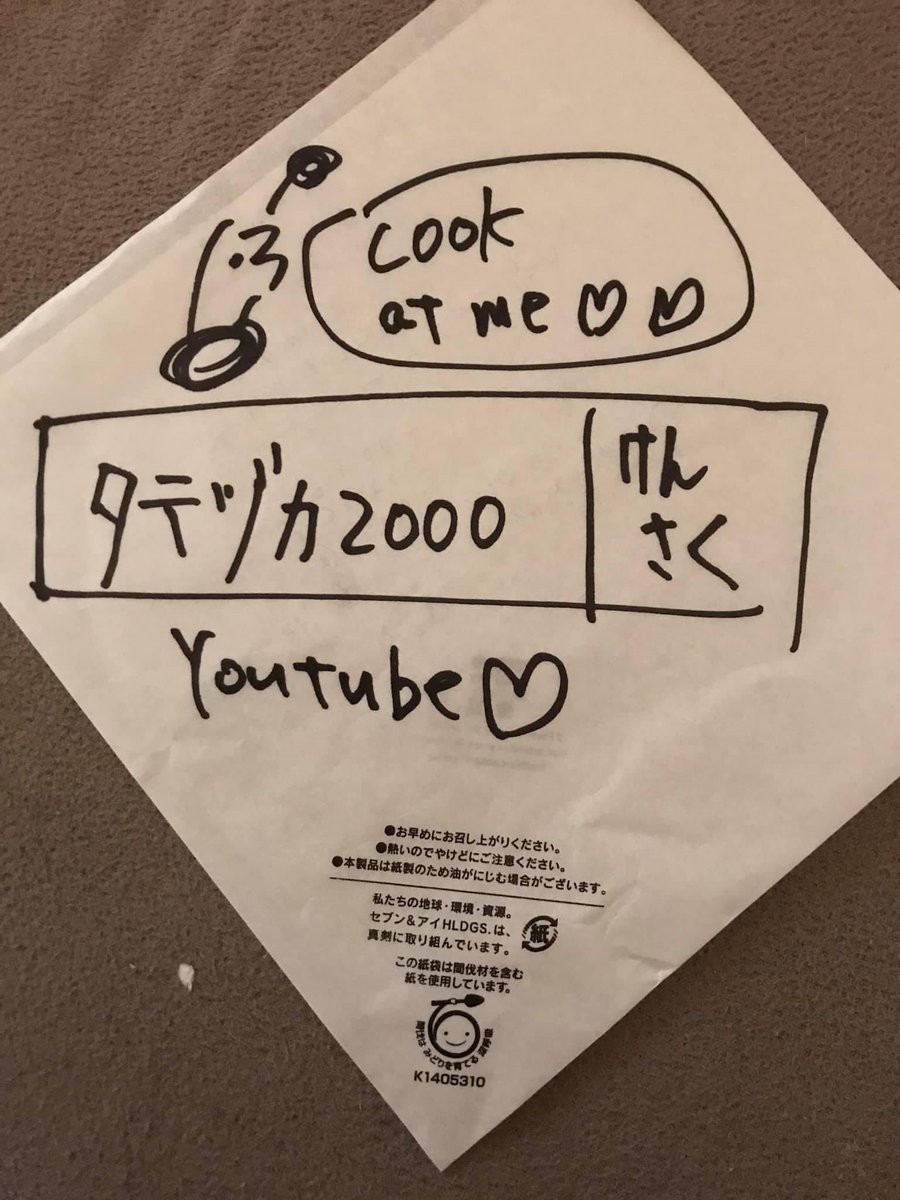 Look
at me♡♡
タテヅカ2000
けん
さく
Youtube♡
●お早めにお召し上がりください。
●熱いのでやけどにご注意ください。
●本製品は紙製のため油がにじむ場合がございます。
私たちの地球・環境・資源。
セブン&アイHLDGS.は、
真剣に取り組んでいます。
紙
この紙袋は間伐材を含む
紙を使用しています。
間伐は みどりを育てる 深呼吸
K1405310